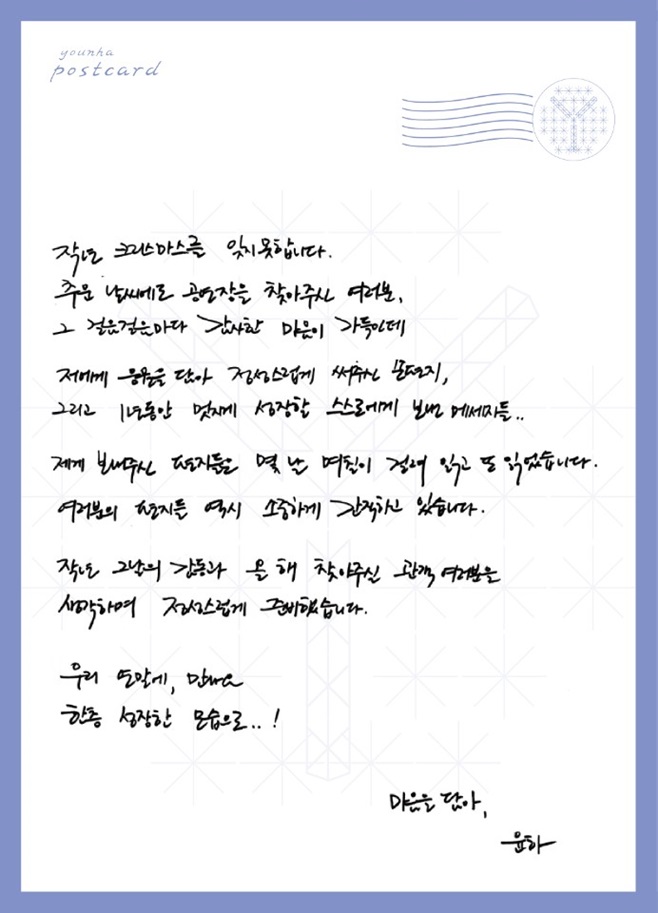 younha
postcard
작년 크리스마스를 잊지 못합니다.
추운 날씨에도 공연장을 찾아주신 여러분,
그 걸음걸음마다 감사한 마음이 가득인데
저에게 응원을 담아 정성스럽게 써주신 손편지,
그리고 1년동안 멋지게 성장할 스스로에게 보내는 메세지들..
제게 보내주신 편지들은 몇 날 며칠이 걸려 읽고 또 읽었습니다.
여러분의 편지들 역시 소중하게 간직하고 있습니다.
작년 그날의 감동과 올 해 찾아주실 관객 여러분을
생각하며 정성스럽게 준비했습니다.
우리 연말에, 만나요
한층 성장한 모습으로..!
마음을 담아,
윤하